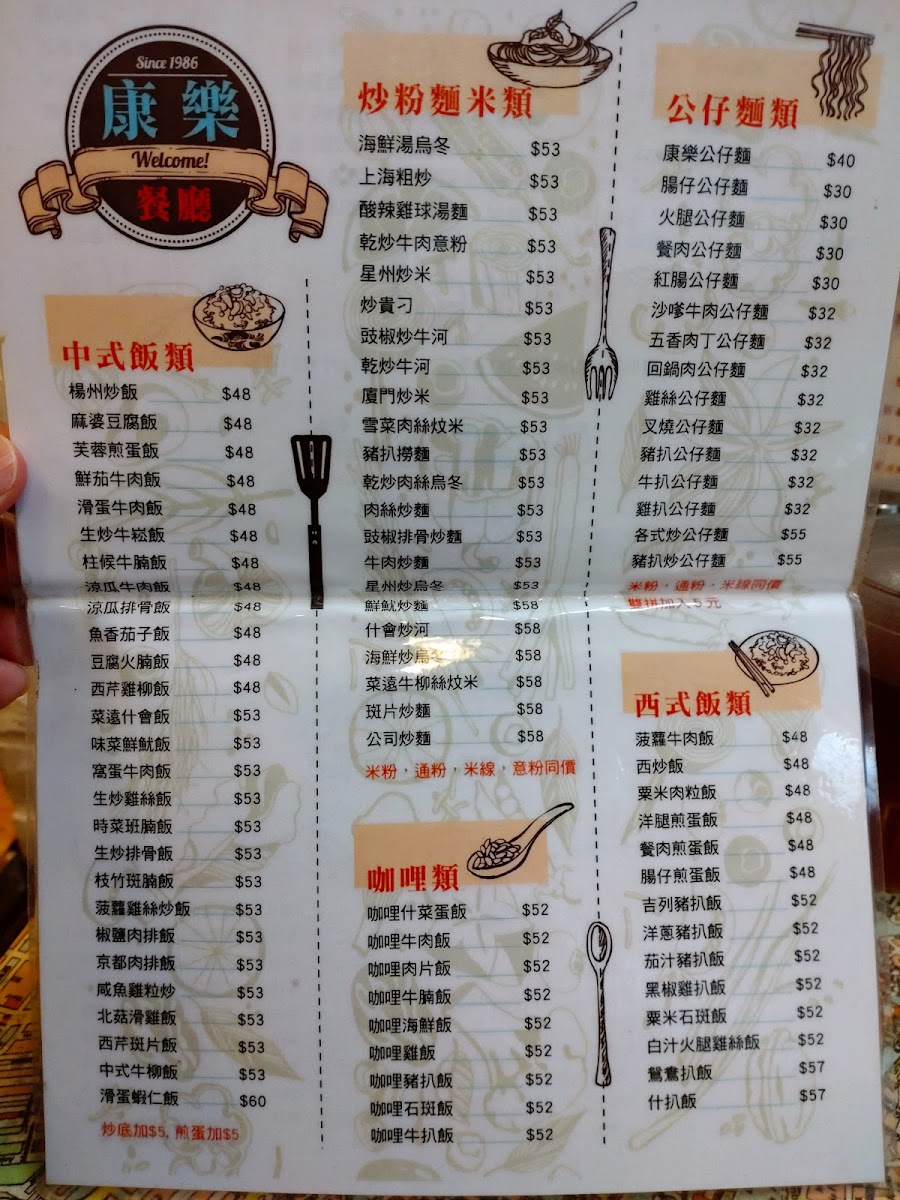 Since 1986
康樂
Welcome!
餐廳
中式飯類
楊州炒飯 $48
麻婆豆腐飯 $48
芙蓉煎蛋飯 $48
鮮茄牛肉飯 $48
滑蛋牛肉飯 $48
生炒牛崧飯 $48
柱候牛腩飯 $48
涼瓜牛肉飯 $48
涼瓜排骨飯 $48
魚香茄子飯 $48
豆腐火腩飯 $48
西芹雞柳飯 $48
菜遠什會飯 $53
味菜鮮魷飯 $53
窩蛋牛肉飯 $53
生炒雞絲飯 $53
時菜班腩飯 $53
生炒排骨飯 $53
枝竹斑腩飯 $53
菠蘿雞絲炒飯 $53
椒鹽肉排飯 $53
京都肉排飯 $53
咸魚雞粒炒 $53
北菇滑雞飯 $53
西芹斑片飯 $53
中式牛柳飯 $53
滑蛋蝦仁飯 $60
炒底加$5, 煎蛋加$5
炒粉麵米類
海鮮湯烏冬 $53
上海粗炒 $53
酸辣雞球湯麵 $53
乾炒牛肉意粉 $53
星州炒米 $53
炒貴刁 $53
豉椒炒牛河 $53
乾炒牛河 $53
廈門炒米 $53
雪菜肉絲炆米 $53
豬扒撈麵 $53
乾炒肉絲烏冬 $53
肉絲炒麵 $53
豉椒排骨炒麵 $53
牛肉炒麵 $53
星州炒烏冬 $53
鮮魷炒麵 $58
什會炒河 $58
海鮮炒烏冬 $58
菜遠牛柳絲炆米 $58
斑片炒麵 $58
公司炒麵 $58
米粉，通粉，米線，意粉同價
咖哩類
咖哩什菜蛋飯 $52
咖哩牛肉飯 $52
咖哩肉片飯 $52
咖哩牛腩飯 $52
咖哩海鮮飯 $52
咖哩雞飯 $52
咖哩豬扒飯 $52
咖哩石斑飯 $52
咖哩牛扒飯 $52
公仔麵類
康樂公仔麵 $40
腸仔公仔麵 $30
火腿公仔麵 $30
餐肉公仔麵 $30
紅腸公仔麵 $30
沙嗲牛肉公仔麵 $32
五香肉丁公仔麵 $32
回鍋肉公仔麵 $32
雞絲公仔麵 $32
叉燒公仔麵 $32
豬扒公仔麵 $32
牛扒公仔麵 $32
雞扒公仔麵 $32
各式炒公仔麵 $55
豬扒炒公仔麵 $55
米粉，通粉，米線同價
雙拼加入5元
西式飯類
菠蘿牛肉飯 $48
西炒飯 $48
粟米肉粒飯 $48
洋腿煎蛋飯 $48
餐肉煎蛋飯 $48
腸仔煎蛋飯 $48
吉列豬扒飯 $52
洋蔥豬扒飯 $52
茄汁豬扒飯 $52
黑椒雞扒飯 $52
粟米石斑飯 $52
白汁火腿雞絲飯 $52
鴛鴦扒飯 $57
什扒飯 $57